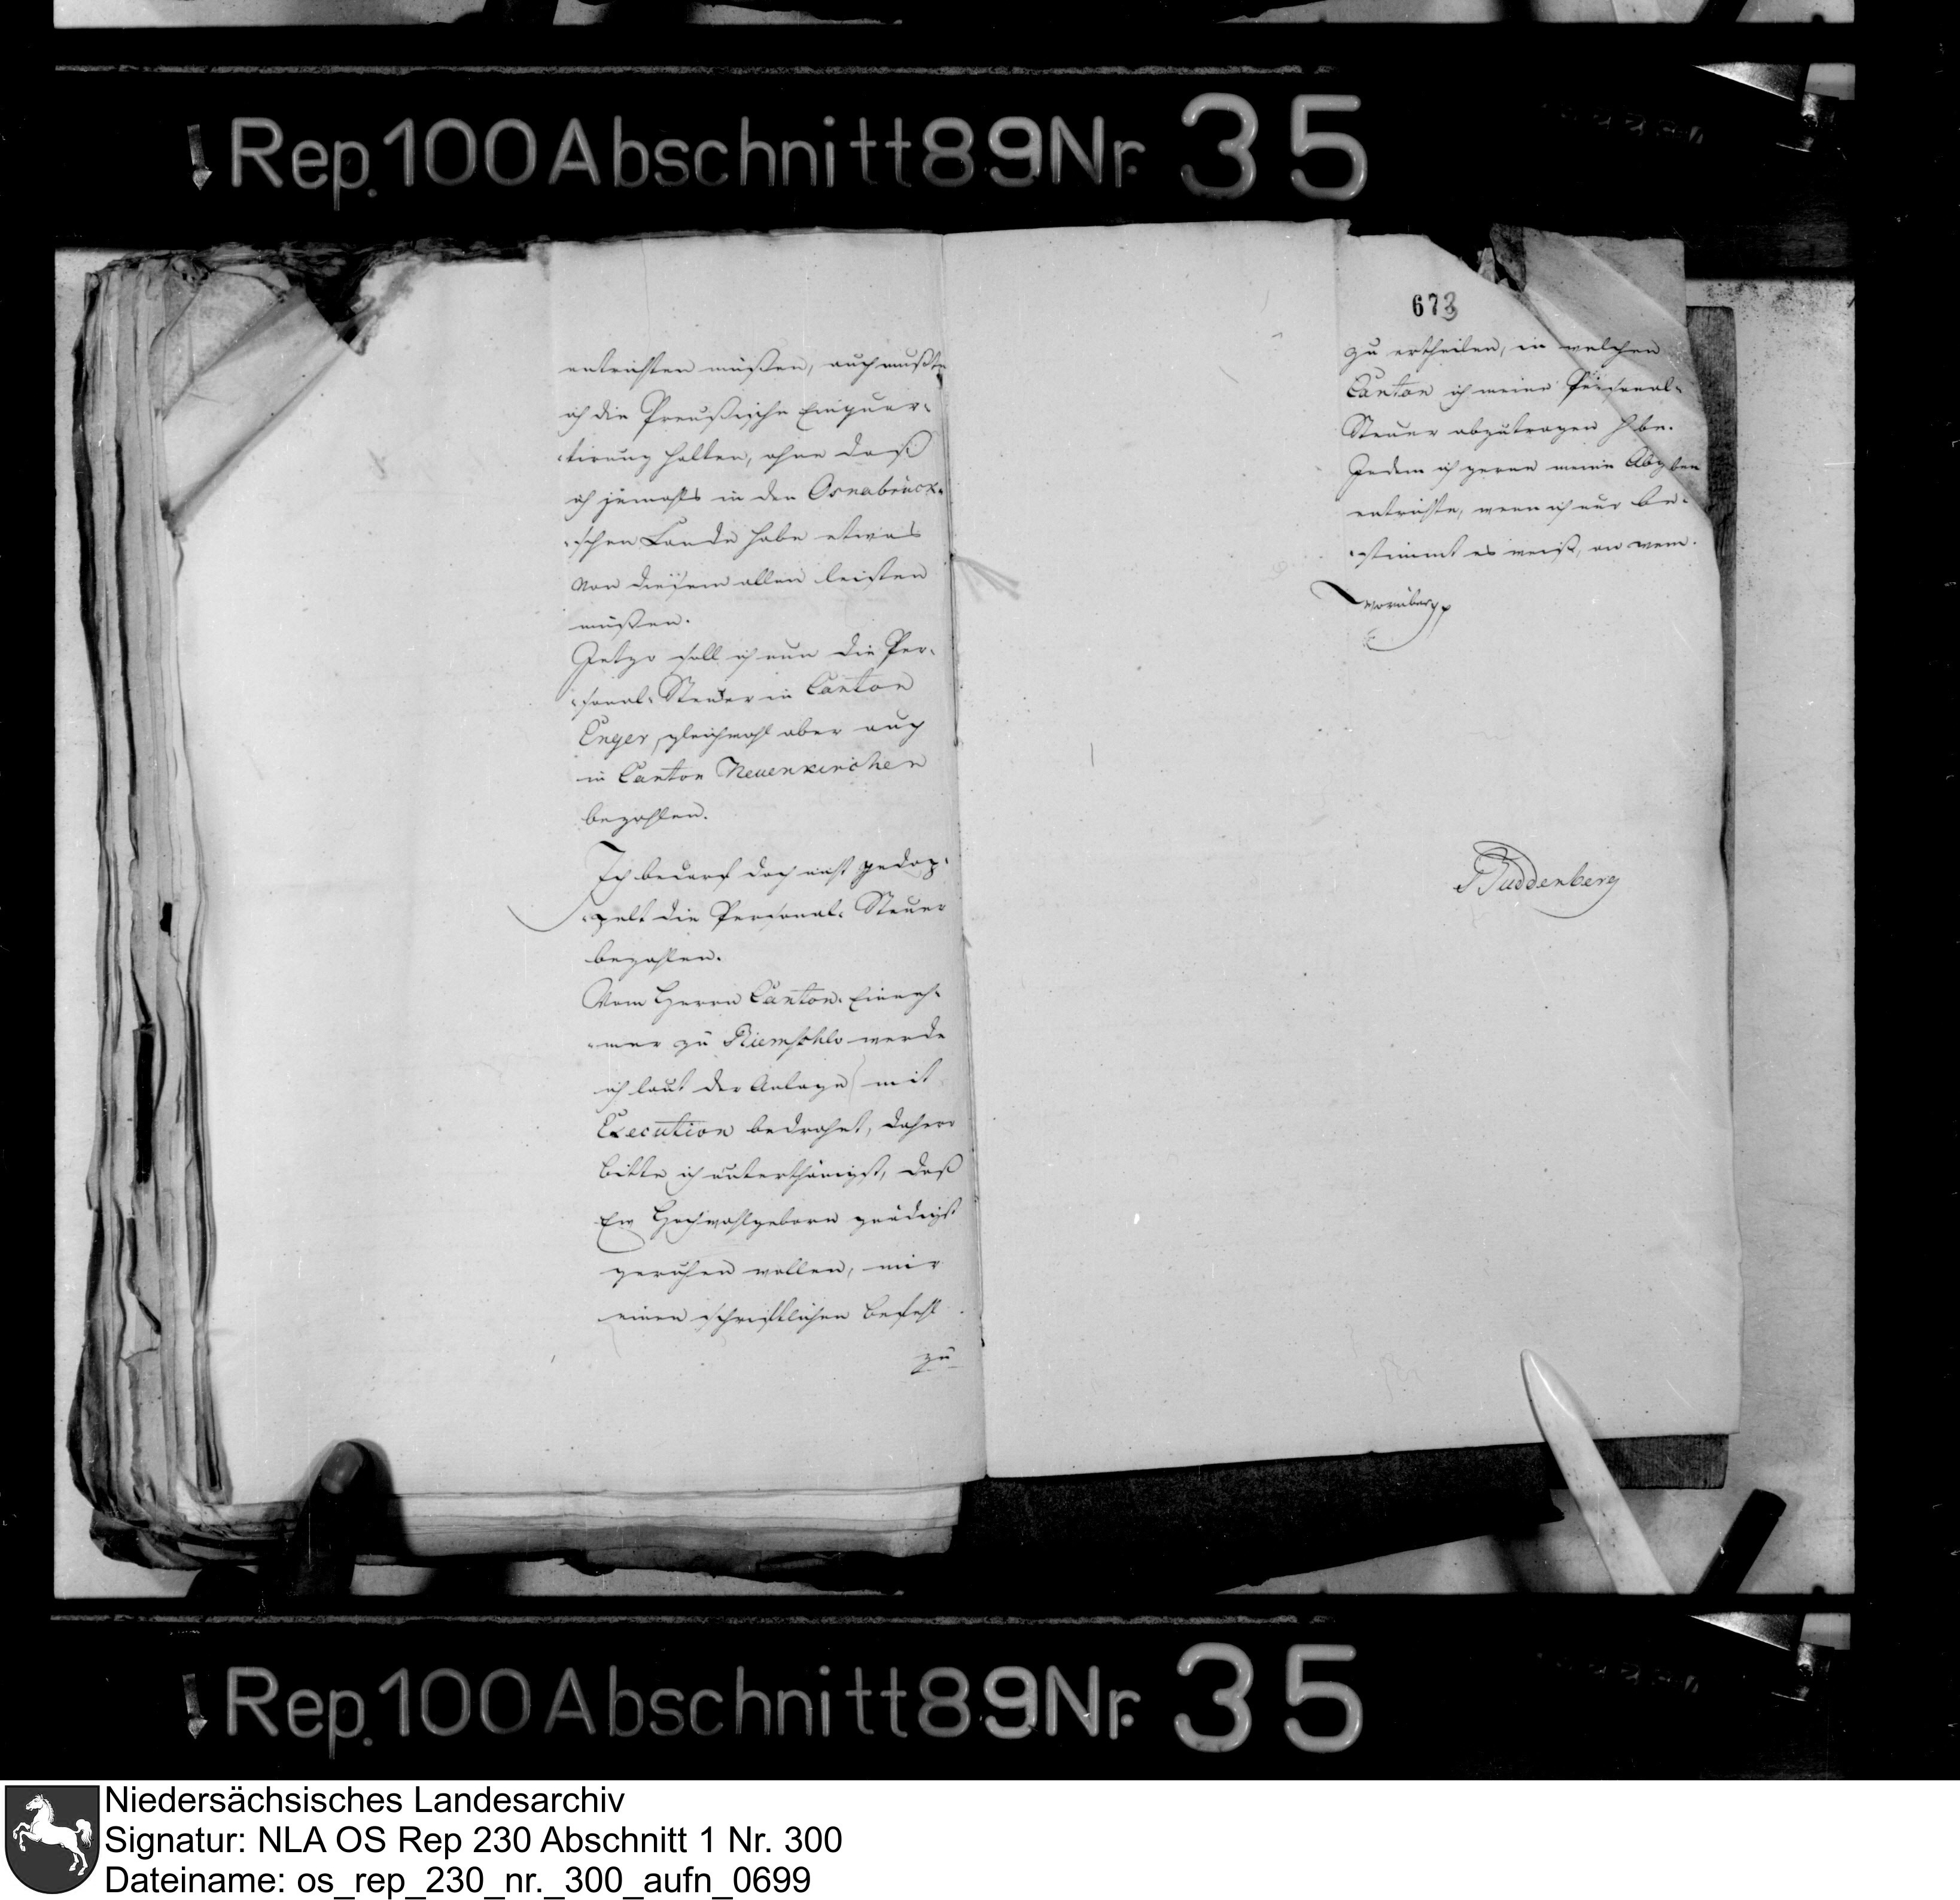 Rep. 100 Abschnitt 89 Nr. 35
entrichten müßen, auch mußte
ich die Preußische Einquar-
tirung halten, ohne daß
ich jemahls in den Osnabrück-
-schen Lande habe etwas
von diesem allen leisten
müßen.
Jetzo soll ich nun die Per-
-sonal-Steuer in Canton
Enger, gleichwohl aber auch
in Canton Neuenkirchen
bezahlen.
Ich bedarf doch nicht gedop-
-pelt die Personal-Steuer
bezahlen.
Vom Herrn Canton-Einneh-
-mer zu Riemsohlo werde
ich laut der Anlage mit
Execution bedrohet, dahero
bitte ich unterthänigst, daß
Ew Hochwohlgeborn gnädigst
geruhen wollen, mir
einen schriftlichen Befehl
zu
673
zu ertheilen, in welchen
Canton ich meine Personal-
Steuer abzutragen habe.
Indem ich gerne meine Abgaben
entrichte, wenn ich nur be-
-stimmt es weiß, an wem.
Worüber pp
Buddenberg
Rep. 100 Abschnitt 89 Nr. 35
Niedersächsisches Landesarchiv
Signatur: NLA OS Rep 230 Abschnitt 1 Nr. 300
Dateiname: os_rep_230_nr._300_aufn_0699